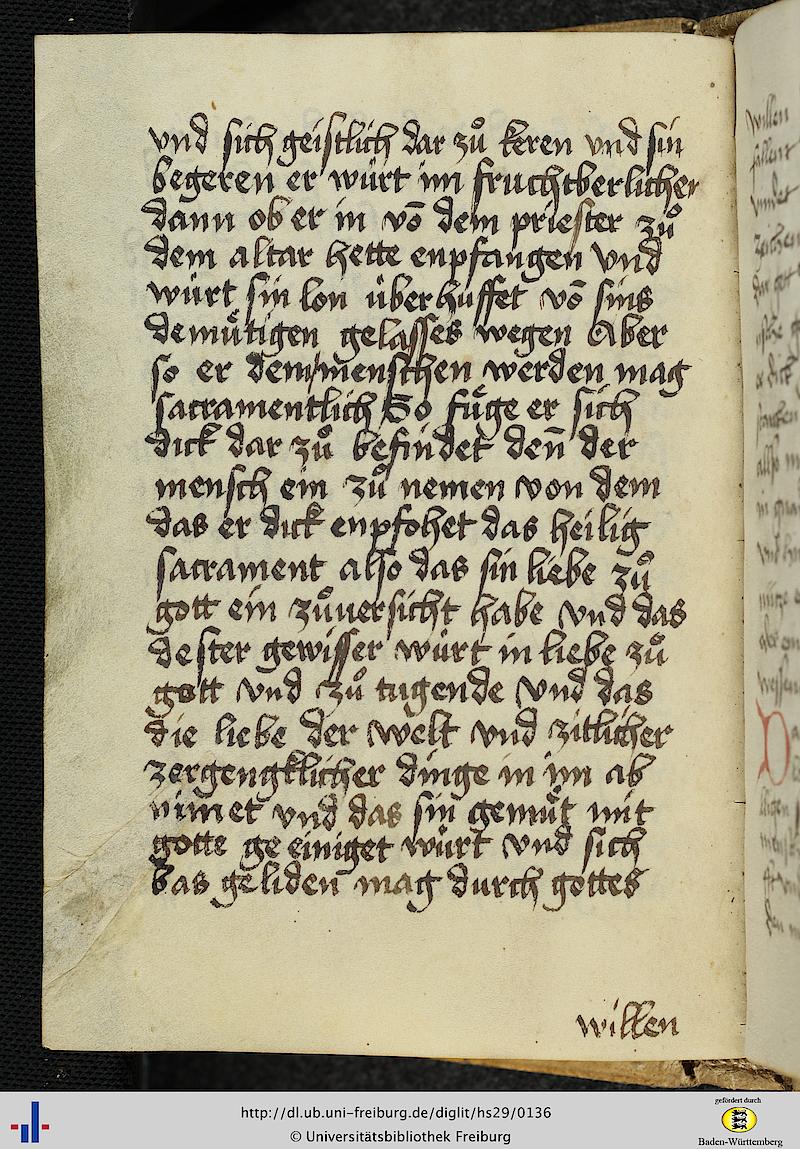 vnd sich geistlich dar zuͦ keren vnd sin
begeren er würt im fruchtberlicher
dann ob er in vō dem priester zuͦ
dem altar hette enpfangen vnd
würt sin lon überhuffet vō sins
demuͤtigen gelasses wegen Aber
so er dem menschen werden mag
sacramentlich So fuͤge er sich
dick dar zuͦ befindet den̄ der
mensch ein zuͦ nemen von dem
das er dick enpfohet das heilig
sacrament also das sin liebe zuͦ
gott ein zuͦuersicht habe vnd das
dester gewisser würt in liebe zuͦ
gott vnd zuͦ tugende vnd das
die liebe der welt vnd zitlicher
zergengklicher dinge in im ab
nimet vnd das sin gemuͤt mit
gotte ge einiget würt vnd sich
bas geliden mag durch gottes
willen
willen
http://dl.ub.uni-freiburg.de/diglit/hs29/0136
© Universitätsbibliothek Freiburg
gefördert durch
Baden-Württemberg